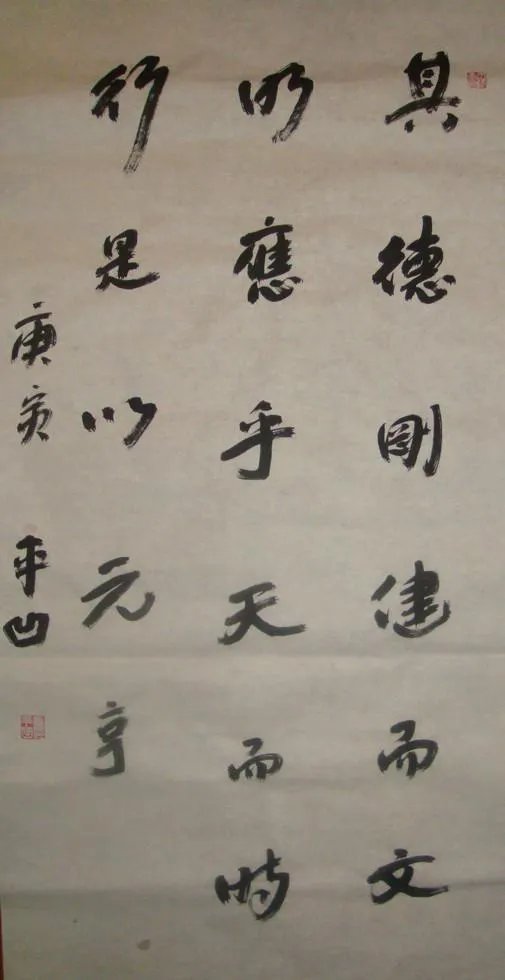 其德剛健而文
明應乎天而時
行是以元亨
庚寅 平凹